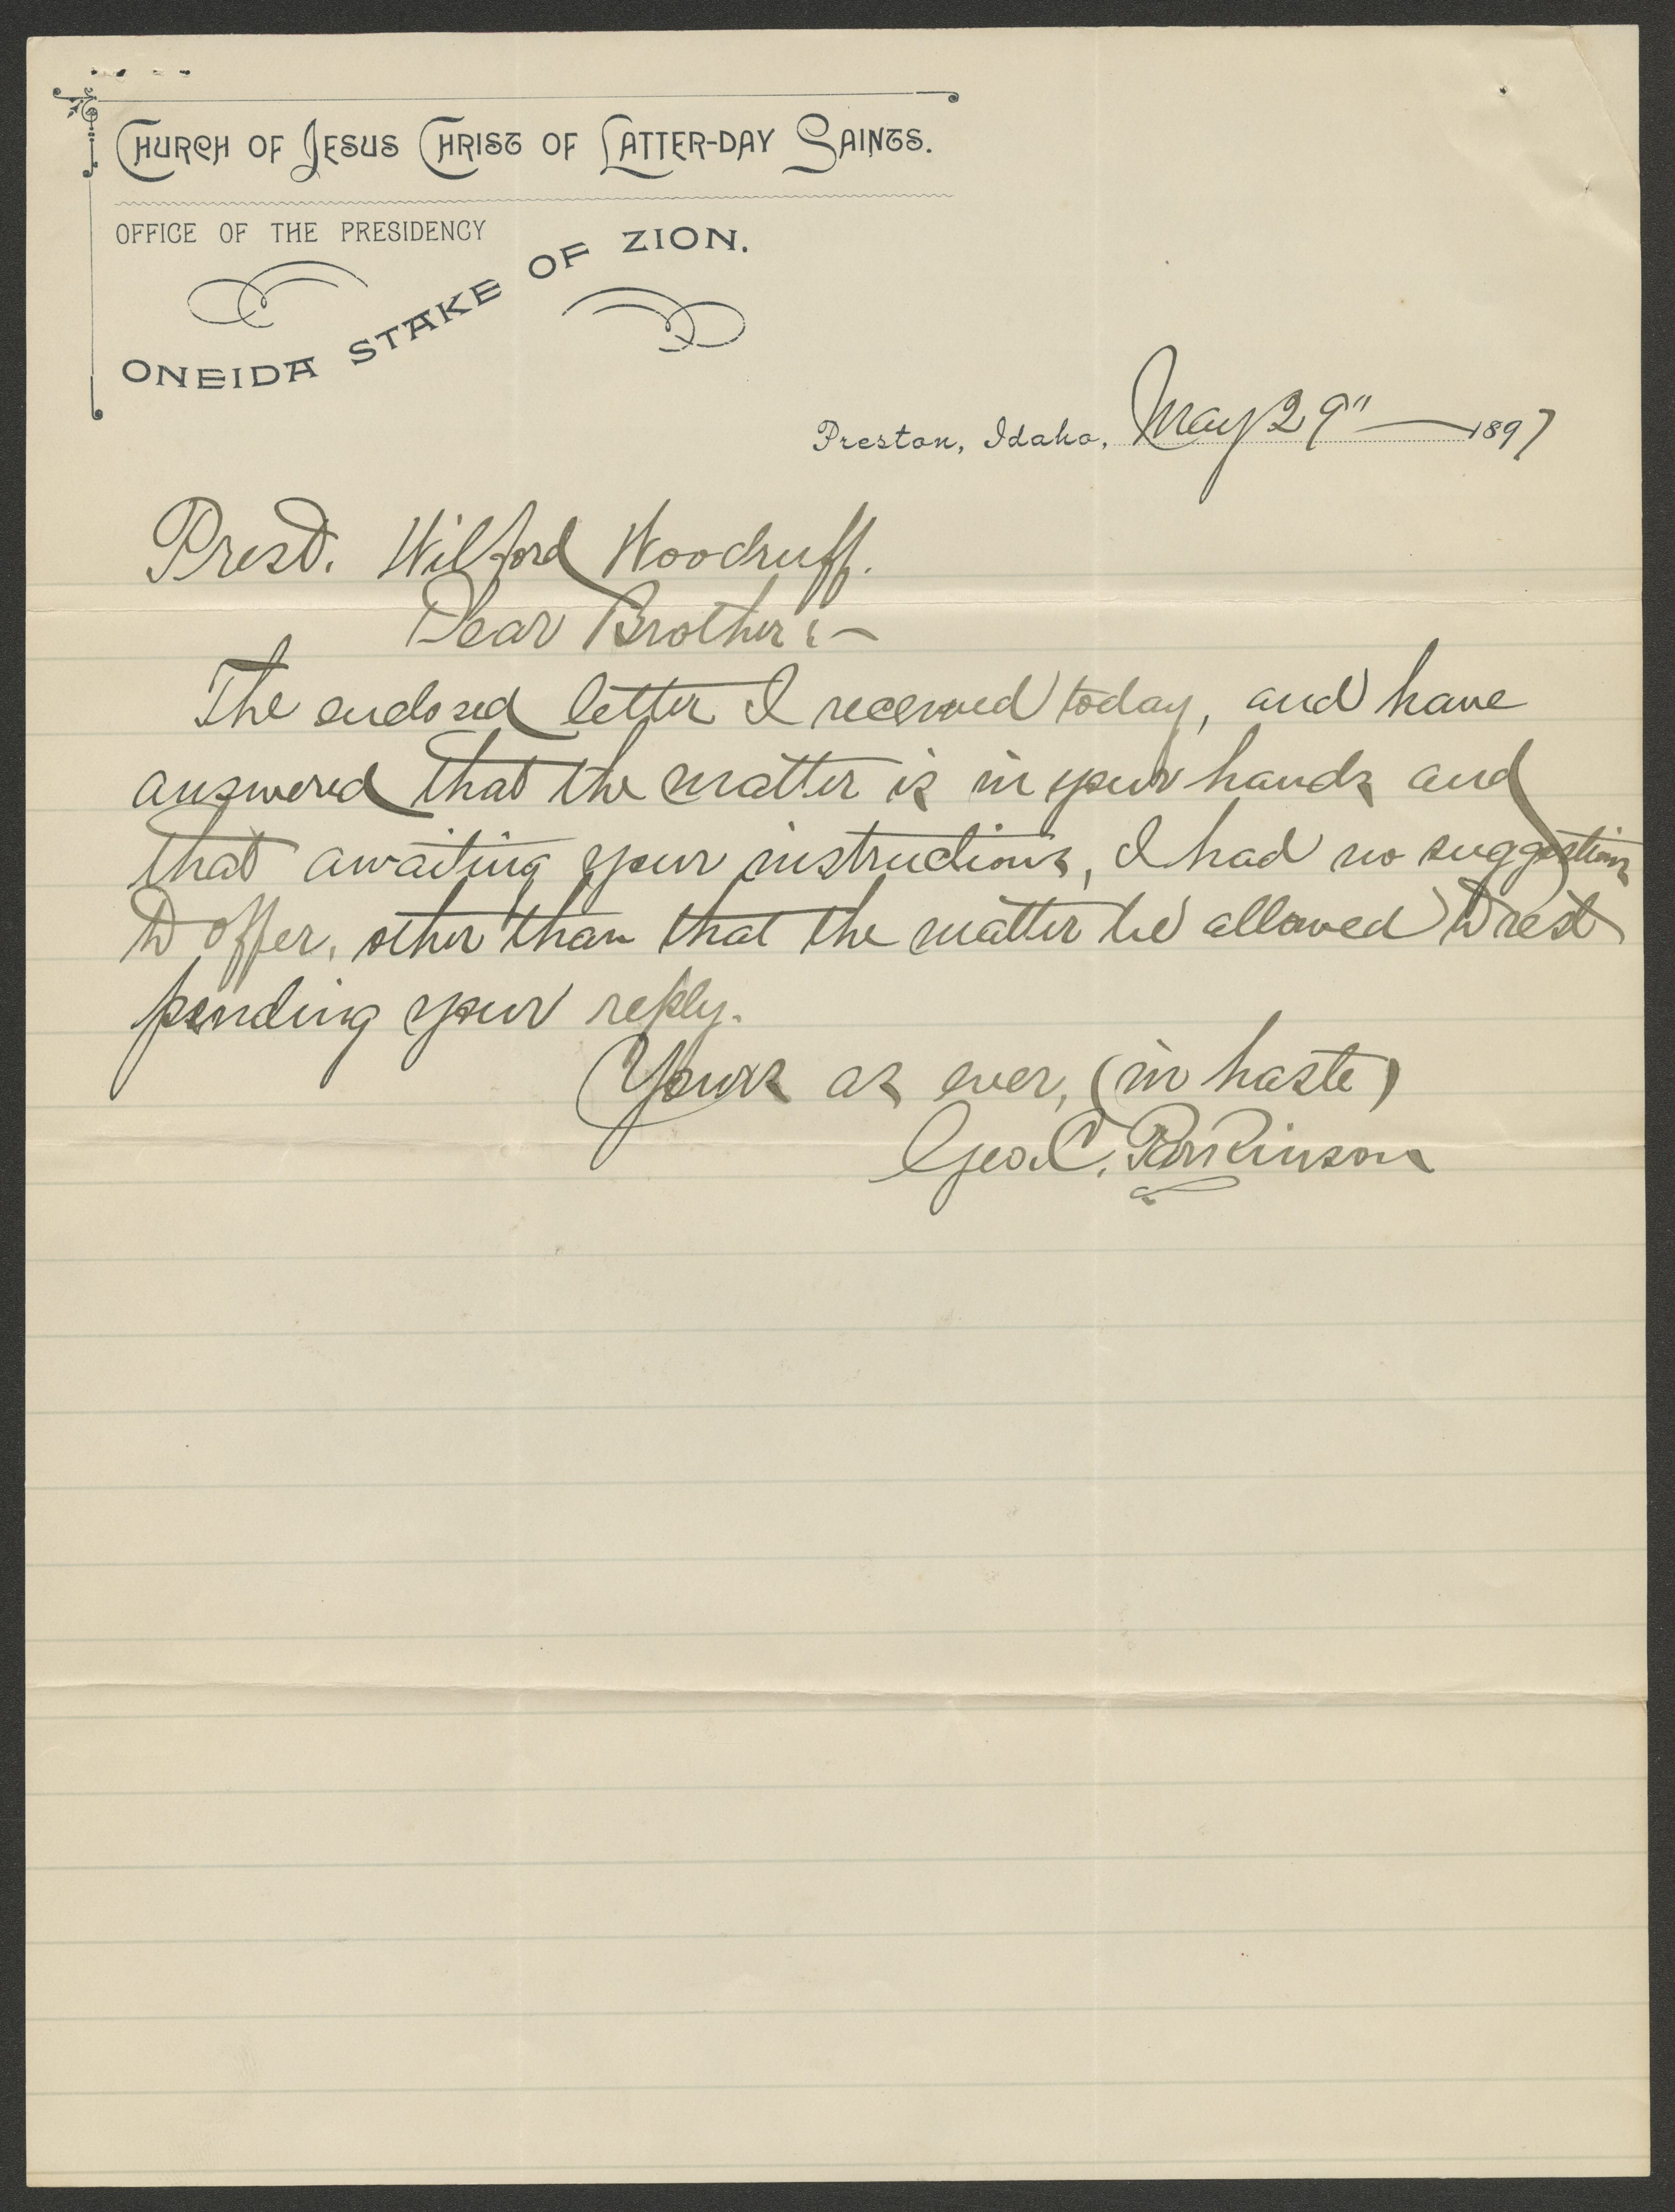 CHURCH OF JESUS CHRIST OF LATTER-DAY SAINTS.
OFFICE OF THE PRESIDENCY
ONEIDA STAKE OF ZION.
Preston, Idaho, May 29" 1897
Prest. Wilford Woodruff.
Dear Brother:-
The enclosed letter I received today, and have
answered that the matter is in your hands and
that awaiting your instructions, I had no suggestions
to offer, other than that the matter be allowed to rest
pending your reply.
Yours as ever, (in haste)
Geo. C. Parkinson